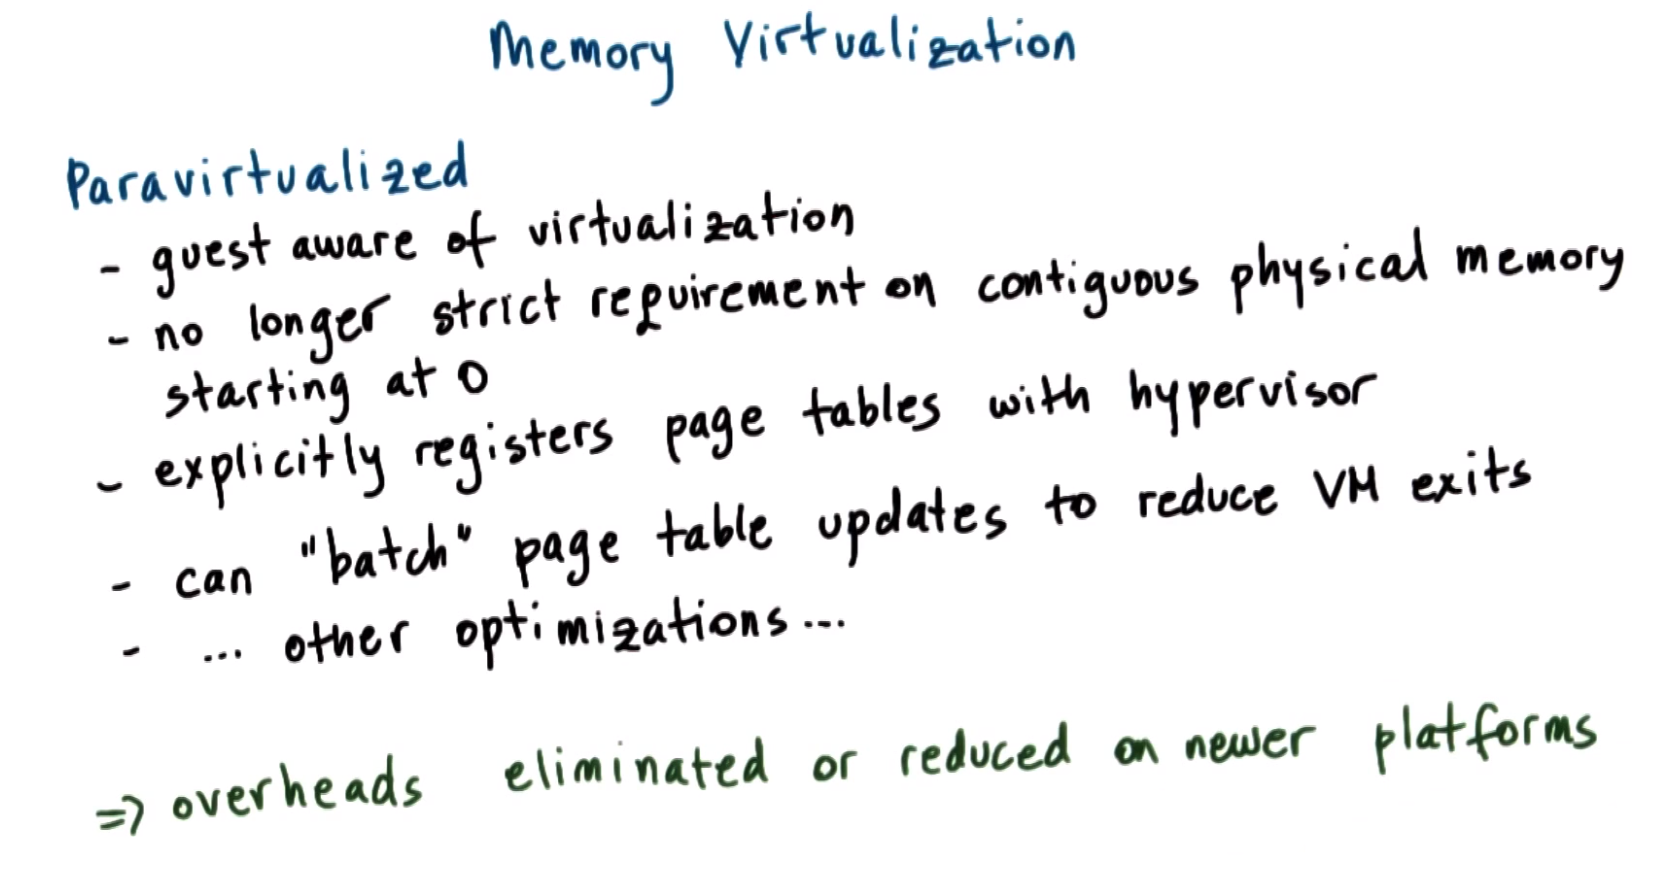 Memory Virtualization
Paravirtualized
- guest aware of virtualization
- no longer strict requirement on contiguous physical memory
starting at 0
- explicitly registers page tables with hypervisor
- can "batch" page table updates to reduce VM exits
- ... other optimizations ...
=> overheads eliminated or reduced on newer platforms